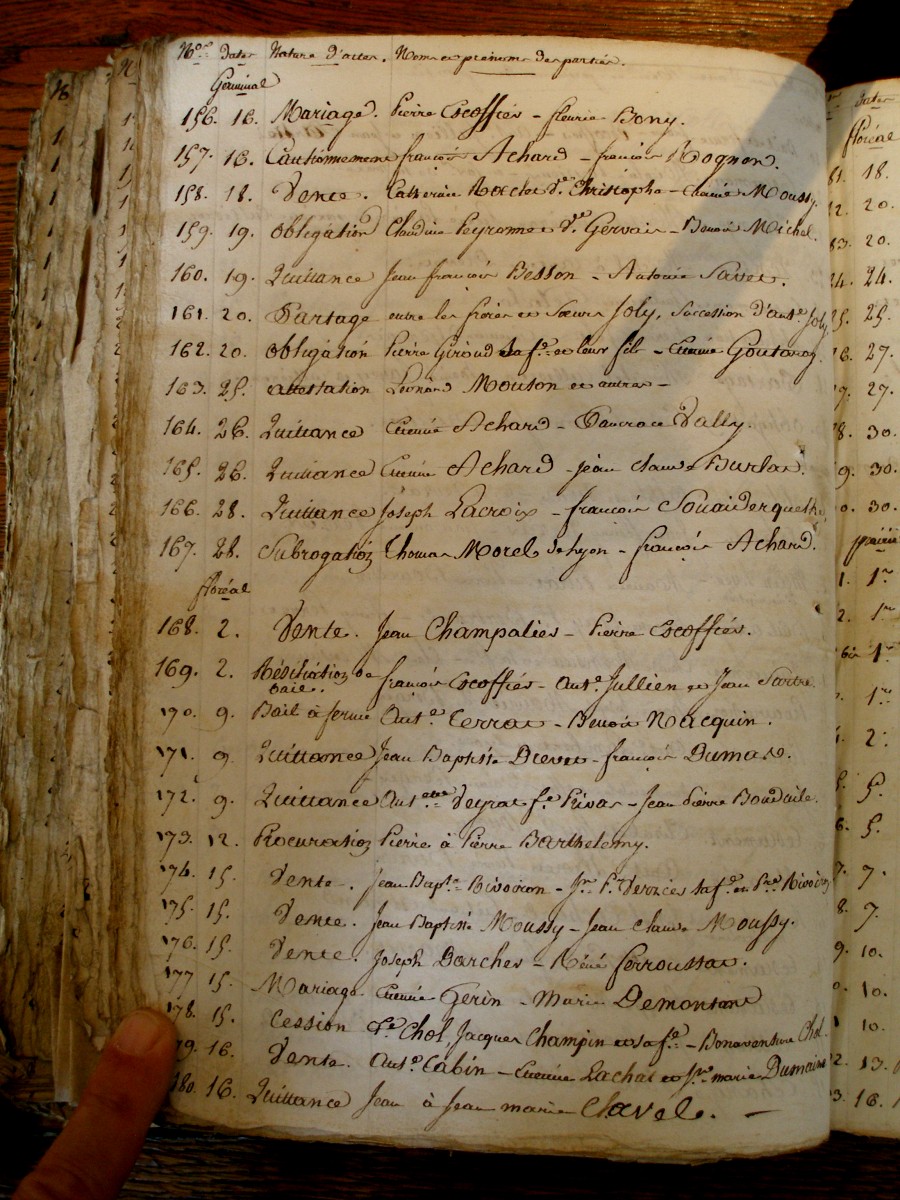 Nos. Dates Nature d'actes. Noms et prenoms des parties.
Germinal
156. 16. Mariage. Pierre Escoffiés - fleurie Bony.
157. 16. Cautionnement françois Achard - françois Rognon.
158. 18. Vente. Catherine Ve. Christophe - Etienne Moussy.
159. 19. Obligation Claudine Peyronnet Ve. Gervais - Benoit Michel.
160. 19. Quittance Jean françois Besson - Antoine Savet.
161. 20. Partage entre les freres et Soeurs Joly, Succession d'ant.e Joly
162. 20. Obligation Pierre Giroud sa fe. et leur fils - Etienne Goutaroz.
163. 25. attestation Léonard Mouton et autres -
164. 26. Quittance Etienne Achard - Pancrace Vally.
165. 26. Quittance Etienne Achard - jean Claude Burlat.
166. 28. Quittance Joseph Lacroix - françois
167. 28. Subrogation Thomas Morel de Lyon - françois Achard.
floréal
168. 2. Vente. Jean Champalies - Pierre Escoffiés.
169. 2. Résiliation de françois Escoffiés - Ant.e Jullien et Jean Sartre
baie.
170. 9. Bail à ferme Ant.e Terrat - Benoit Nacquin.
171. 9. Quittance Jean Baptiste Drevet - françois Dumas.
172. 9. Quittance Ant.ette Veyrat fe. Rivat - Jean Pierre
173. 12. Procuration Pierre à Pierre Barthelemy.
174. 15. Vente. Jean Bapt.e Rivoiron - sa fe. et
175. 15. Vente. Jean Baptiste Moussy - Jean Claude Moussy.
176. 15. Vente. Joseph Darches - Réné ferroussat.
177 15. Mariage. Etienne Gerin - Marie Demontant
178. 15. Cession Chol, Jacques Champin et sa fe. - Bonaventure Chol.
79. 16. Vente. Ant.e Cabin - Etienne Lachat et marie Dumaine
180. 16. Quittance Jean à Jean marie Clavel. -
Dates
floréal
81. 18.
2. 20.
83. 20.
24.
25.
6. 27.
7. 27.
8. 30.
9. 30.
0. 30.
prairial
1. 1er
2. 1er
1er
1er
2.
5. 5.
6. 5.
7. 7.
8. 7.
9. 10.
0. 10.
1 10.
2. 13.
3. 16.